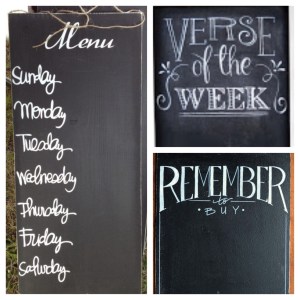 Menu
Sunday
Monday
Tuesday
Wednesday
Thursday
Friday
Saturday
VERSE
of the
WEEK
REMEMBER
to
BUY